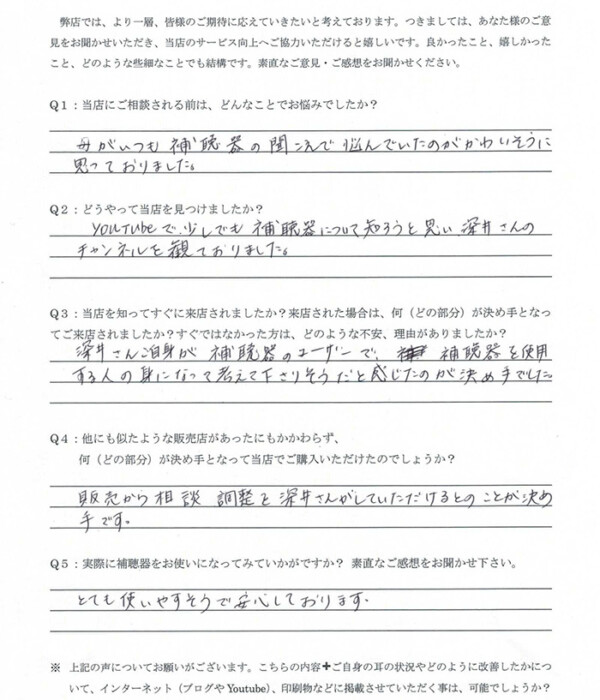 弊店では、より一層、皆様のご期待に応えていきたいと考えております。つきましては、あなた様のご意
見をお聞かせいただき、当店のサービス向上へご協力いただけると嬉しいです。良かったこと、嬉しかった
こと、どのような些細なことでも結構です。素直なご意見・ご感想をお聞かせください。
Q1：当店にご相談される前は、どんなことでお悩みでしたか？
母がいつも補聴器の聞こえで悩んでいたのがかわいそうに
思っておりました。
Q2：どうやって当店を見つけましたか？
YouTubeで、少しでも補聴器について知ろうと思い、深井さんの
チャンネルを観ておりました。
Q3：当店を知ってすぐに来店されましたか？来店された場合は、何（どの部分）が決め手となっ
てご来店されましたか？すぐではなかった方は、どのような不安、理由がありましたか？
深井さんご自身が補聴器のユーザーで、補聴器を使用
する人の身になって考えて下さりそうだと感じたのが決め手でした
Q4：他にも似たような販売店があったにもかかわらず、
何（どの部分）が決め手となって当店でご購入いただけたのでしょうか？
販売から相談 調整を深井さんがしていただけるとのことが決め
手です。
Q5：実際に補聴器をお使いになってみていかがですか？ 素直なご感想をお聞かせ下さい。
とても使いやすそうで安心しております。
※ 上記の声についてお願いがございます。こちらの内容＋ご自身の耳の状況やどのように改善したかにつ
いて、インターネット（ブログや Youtube）、印刷物などに掲載させていただく事は、可能でしょうか？